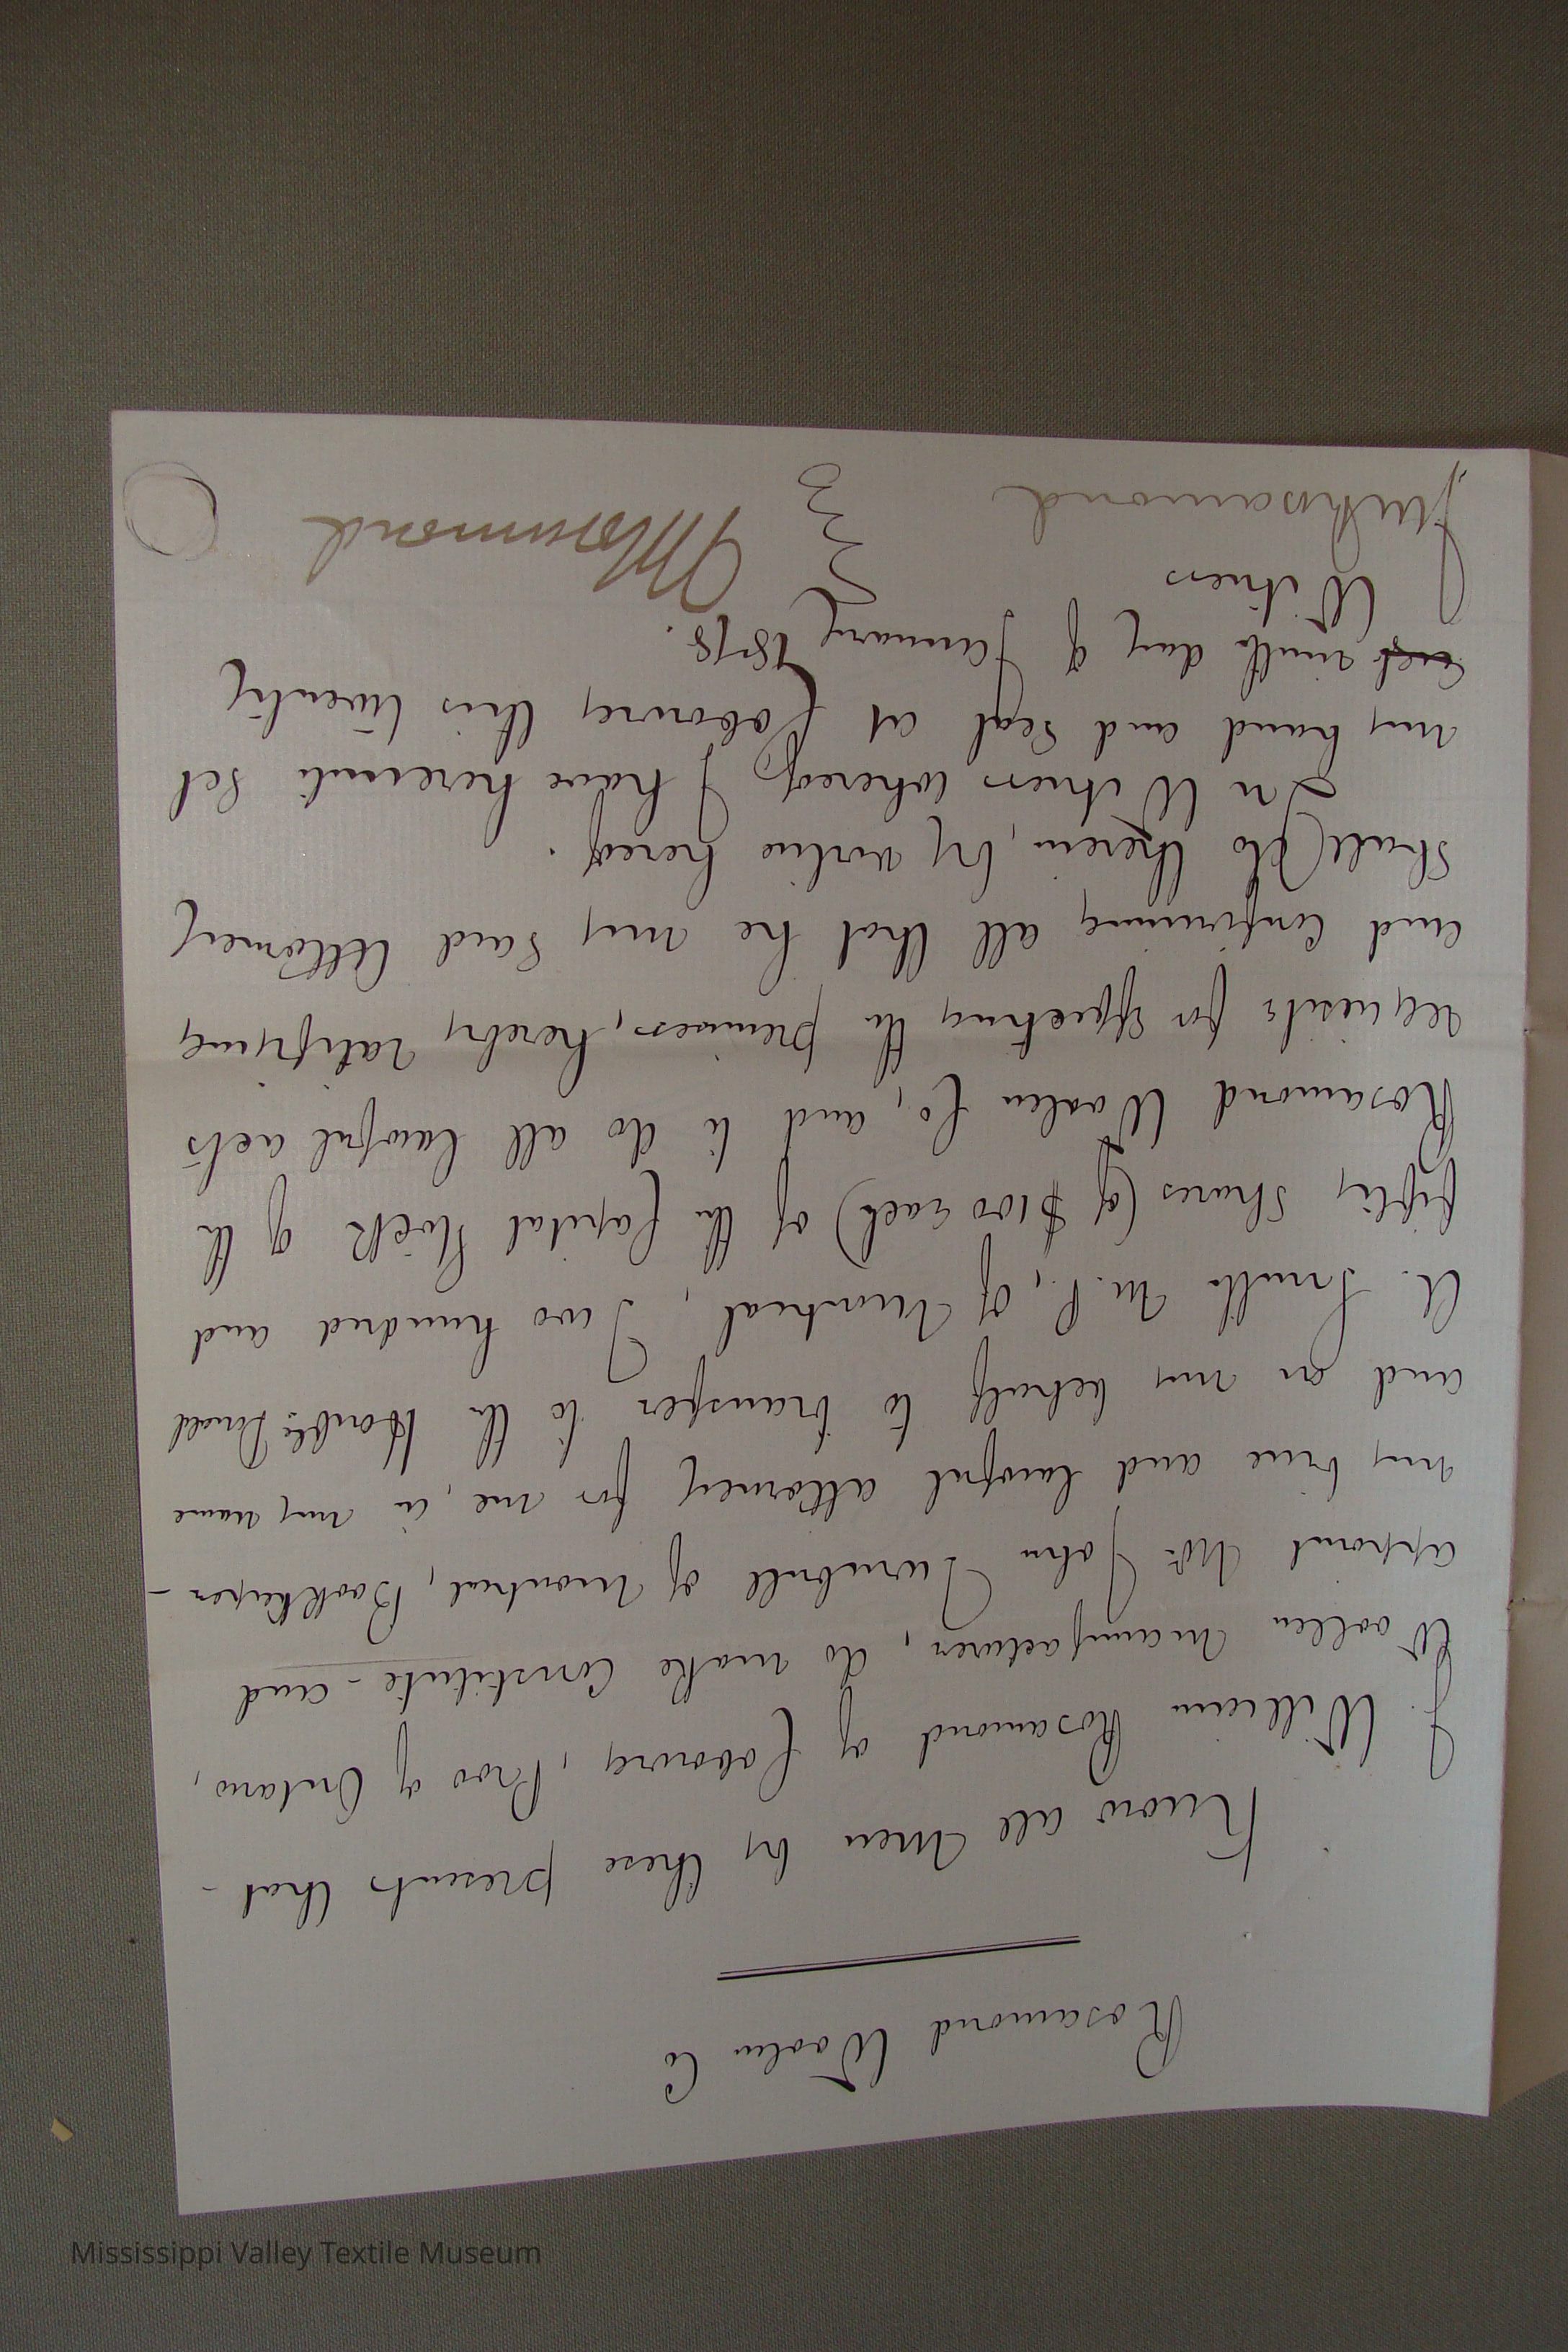 Rosamond Woolen Co
Know all Men by these presents that -
I. William Rosamond of Cobourg, Prov of Ontario,
Woollen Manufacturer, do make Constitute - and
appoint Mr. John Turnbull of Montreal, Bookkeeper -
my true and lawful attorney for me, in my name
and on my behalf to transfer to the Honble Donald
A. Smith M.P., of Montreal, Two hundred and
fifty Shares (of $100 each) of the Capital Stock of the
Rosamond Woolen Co, and to do all lawful acts
requisite for effecting the premises, hereby ratifying
and Confirming all that he my said Attorney
shall do therein, by virtue hereof.
In Witness whereof, I have hereunto set
my hand and seal at Cobourg this twenty
ninth day of January 1878.
Witness
Rosamond
Rosamond
Mississippi Valley Textile Museum